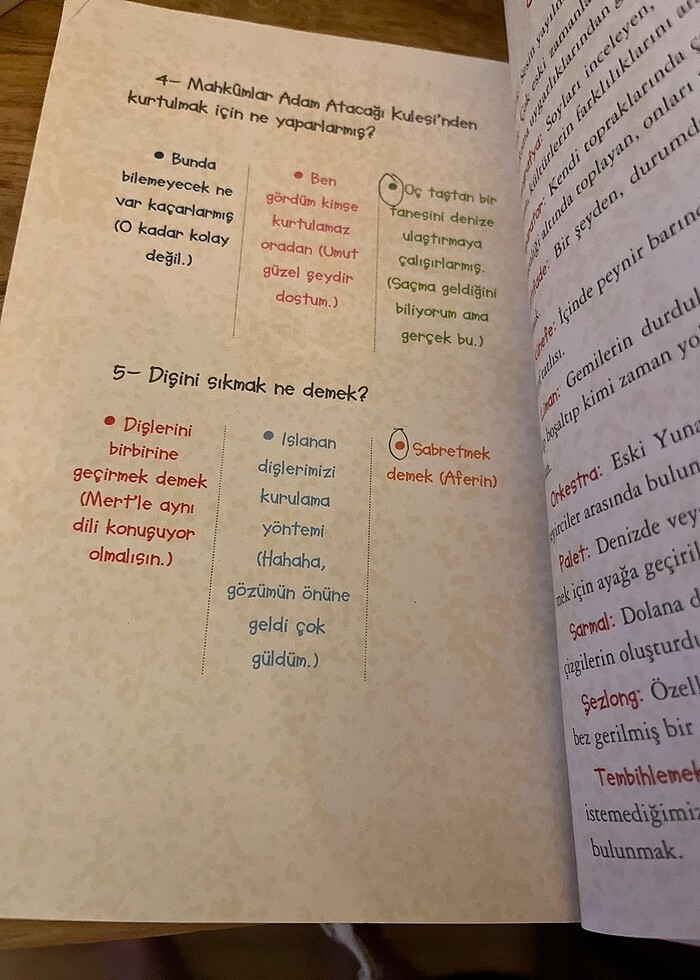 4- Mahkûmlar Adam Atacağı Kulesi'nden
kurtulmak için ne yaparlarmış?
• Bunda
bilemeyecek ne
var kaçarlarmış
(O kadar kolay
değil.)
• Ben
gördüm kimse
kurtulamaz
oradan (Umut
güzel şeydir
dostum.)
• Üç taştan bir
tanesini denize
ulaştırmaya
çalışırlarmış.
(Saçma geldiğini
biliyorum ama
gerçek bu.)
5- Dişini sıkmak ne demek?
• Dişlerini
birbirine
geçirmek demek
(Mert'le aynı
dili konuşuyor
olmalısın.)
• Islanan
dişlerimizi
kurulama
yöntemi
(Hahaha,
gözümün önüne
geldi çok
güldüm.)
• Sabretmek
demek (Aferin)
Çok eski zamanla
uygarlıklarından
Soyları inceleyen,
kültürlerin farklılıklarını
Kendi topraklarında
altında toplayan, onları
Bir şeyden, durumd
İçinde peynir barın
tatlısı.
Liman: Gemilerin durdu
boşaltıp kimi zaman yo
Orkestra: Eski Yuna
seyirciler arasında bulun
Palet: Denizde vey
mek için ayağa geçiril
Sarmal: Dolana d
çizgilerin oluşturdu
Şezlong: Özell
bez gerilmiş bir
Tembihlemek
istemediğimiz
bulunmak.